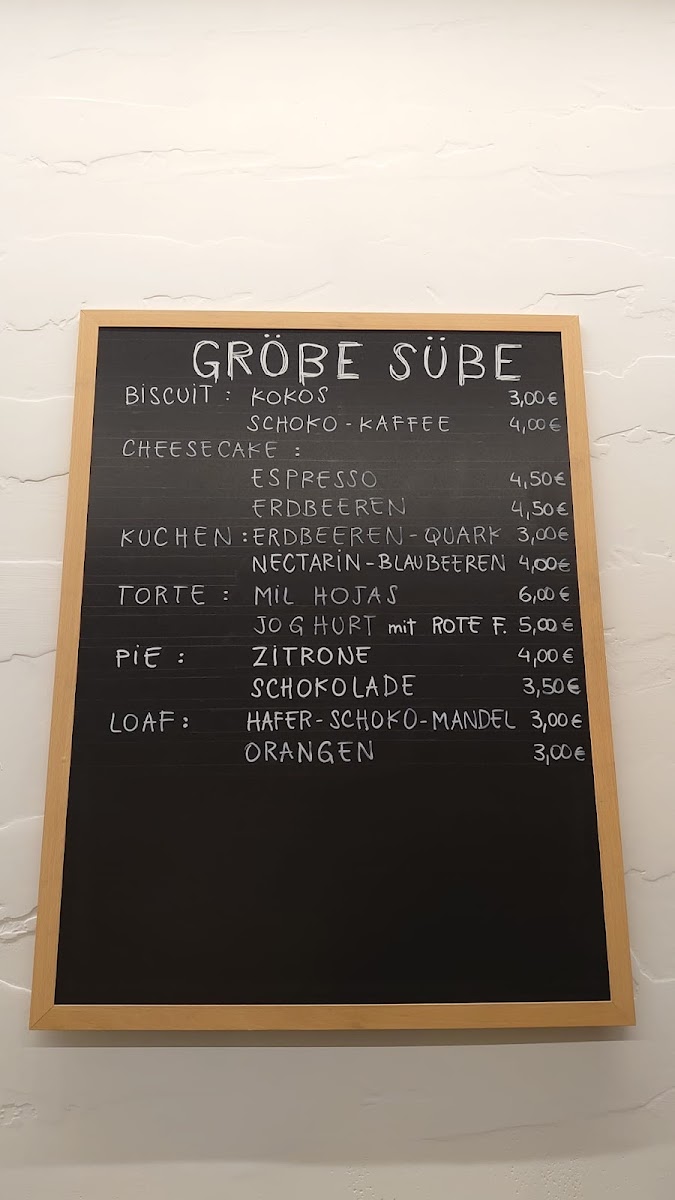 GRÖßE SÜßE
BISCUIT : KOKOS 3,00 €
SCHOKO - KAFFEE 4,00 €
CHEESECAKE :
ESPRESSO 4,50 €
ERDBEEREN 4,50 €
KUCHEN : ERDBEEREN - QUARK 3,00 €
NECTARIN - BLAUBEEREN 4,00 €
TORTE : MIL HOJAS 6,00 €
JOGHURT mit ROTE F. 5,00 €
PIE : ZITRONE 4,00 €
SCHOKOLADE 3,50 €
LOAF : HAFER - SCHOKO - MANDEL 3,00 €
ORANGEN 3,00 €